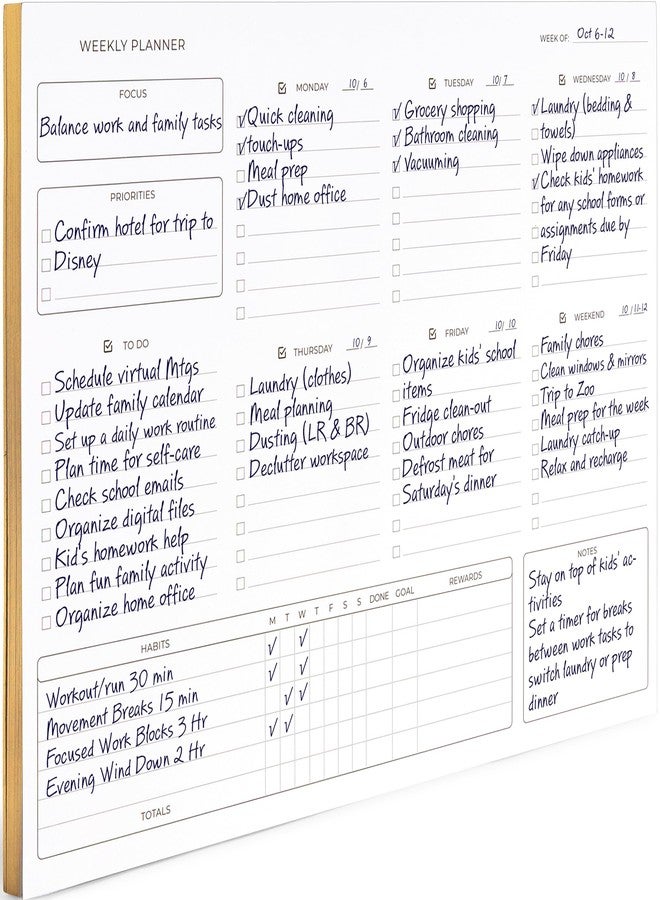 WEEKLY PLANNER
WEEK OF: Oct 6-12
FOCUS
Balance work and family tasks
PRIORITIES
Confirm hotel for trip to
Disney
MONDAY 10/6
Quick cleaning
touch-ups
Meal prep
Dust home office
TUESDAY 10/7
Grocery shopping
Bathroom cleaning
Vacuuming
WEDNESDAY 10/8
Laundry (bedding &
towels)
Wipe down appliances
Check kids' homework
for any school forms or
assignments due by
Friday
TO DO
Schedule virtual Mtgs
Update family calendar
Set up a daily work routine
Plan time for self-care
Check school emails
Organize digital files
Kid's homework help
Plan fun family activity
Organize home office
THURSDAY 10/9
Laundry (clothes)
Meal planning
Dusting (LR & BR)
Declutter workspace
FRIDAY 10/10
Organize kids' school
items
Fridge clean-out
Outdoor chores
Defrost meat for
Saturday's dinner
WEEKEND 10/11-12
Family chores
Clean windows & mirrors
Trip to Zoo
Meal prep for the week
Laundry catch-up
Relax and recharge
HABITS M T W T F S S DONE GOAL REWARDS
Workout/run 30 min
Movement Breaks 15 min
Focused Work Blocks 3 Hr
Evening Wind Down 2 Hr
TOTALS
NOTES
Stay on top of kids' ac-
tivities
Set a timer for breaks
between work tasks to
switch laundry or prep
dinner